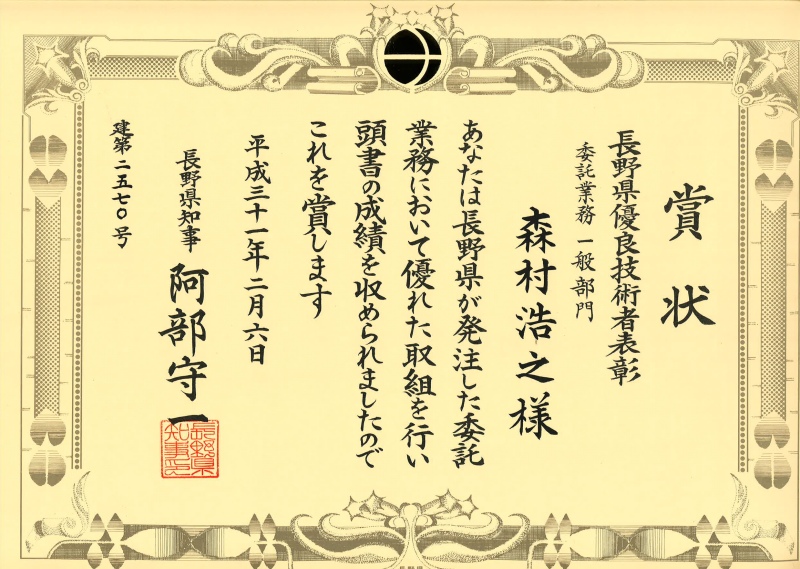 賞状
長野県優良技術者表彰
委託業務 一般部門
森村浩之様
あなたは長野県が発注した委託
業務において優れた取組を行い
頭書の成績を収められましたので
これを賞します
平成三十一年二月六日
長野県知事 阿部守一
長野県
知事印
建第二五七〇号